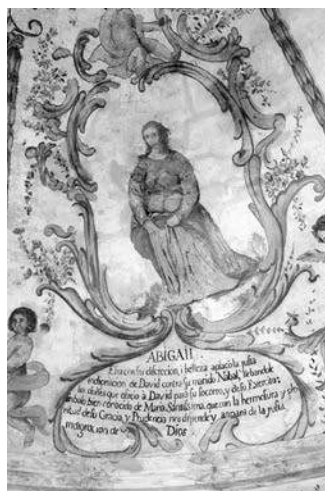 ABIGAIL
Esta con su discrecion, i belleza aplacó la justa
indignacion de David contra su marido Nabal
los dones que ofrecio á David para su socorro, y de su Exercito;
simbolo bien conocido de María Santissima, que con la hermosura y
ritual de su Gracia, y Prudencia nos defiende y ampara de la justa
indignacion de Dios